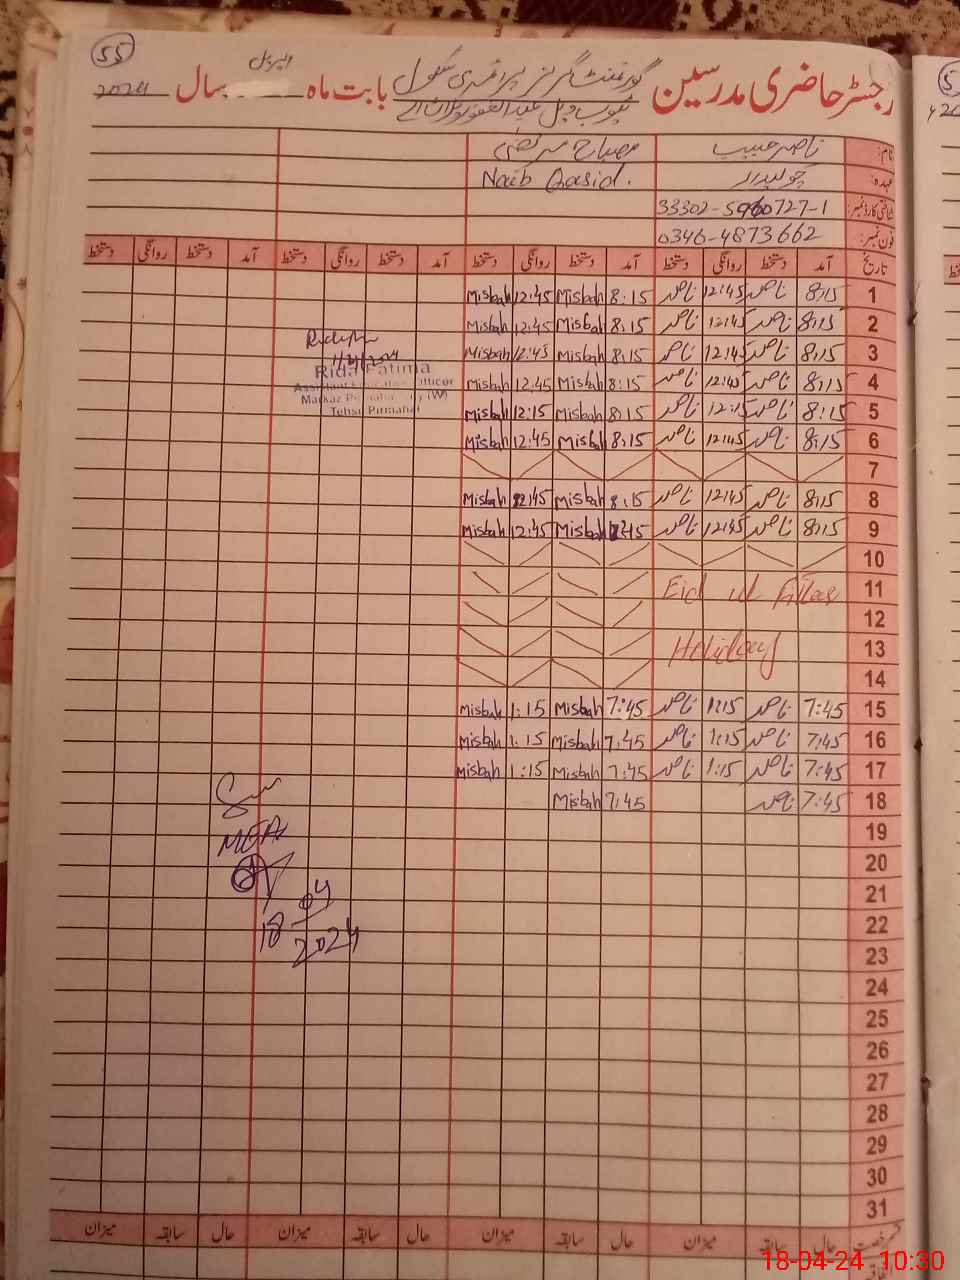 55
رجسٹر حاضری مدرسین گورنمنٹ گرلز پرائمری سکول بابت ماہ اپریل سال 2024
نام: ناصر حبیب مصباح مرتضیٰ
عہدہ: چوکیدار Naib Qasid.
شناختی کارڈ نمبر: 33302-5960727-1
فون نمبر: 0346-4873662
تاریخ آمد دستخط روانگی دستخط آمد دستخط روانگی دستخط آمد دستخط روانگی دستخط آمد دستخط روانگی دستخط
1 8:15 ناصر 12:45 ناصر 8:15 Misbah 12:45 Misbah
2 8:15 ناصر 12:45 ناصر 8:15 Misbah 12:45 Misbah
3 8:15 ناصر 12:45 ناصر 8:15 Misbah 12:45 Misbah
4 8:15 ناصر 12:45 ناصر 8:15 Misbah 12:45 Misbah
5 8:15 ناصر 12:15 ناصر 8:15 Misbah 12:15 Misbah
6 8:15 ناصر 12:45 ناصر 8:15 Misbah 12:45 Misbah
7
8 8:15 ناصر 12:45 ناصر 8:15 Misbah 12:45 Misbah
9 8:15 ناصر 12:45 ناصر Misbah 12:45 Misbah
10
11 Eid ul Fitar
12
13 Holiday
14
15 7:45 ناصر 1:15 ناصر 7:45 Misbah 1:15 Misbah
16 7:45 ناصر 1:15 ناصر 7:45 Misbah 1:15 Misbah
17 7:45 ناصر 1:15 ناصر 7:45 Misbah 1:15 Misbah
18 7:45 ناصر 7:45 Misbah
19
20
21
22
23
24
25
26
27
28
29
30
31
Rida Fatima
Assistant Education Officer
Markaz (W)
Tehsil Pirmahal
MEA
18-04-2024
رخصت حال سابقہ میزان حال سابقہ میزان حال سابقہ میزان حال سابقہ میزان
18-04-24 10:30